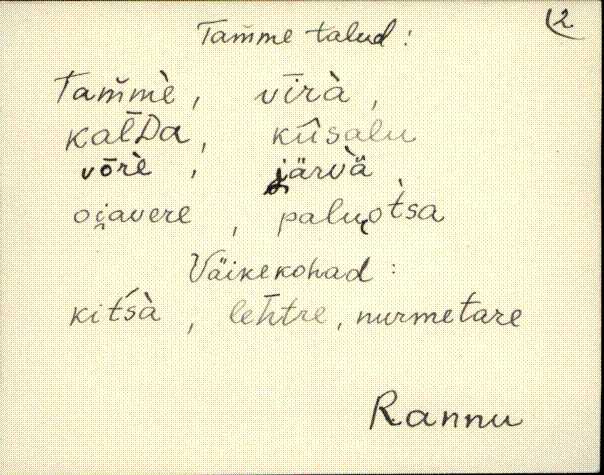 (2
Tam̄me talud:
Tam̆mè, vīrà,
kal̄Da, kîisalu
vōrè, järvä̀
oi̭avere, palu̬ot̀sa
Väikekohad:
kit́sà, leh̄tre, nurmetare
Rannu